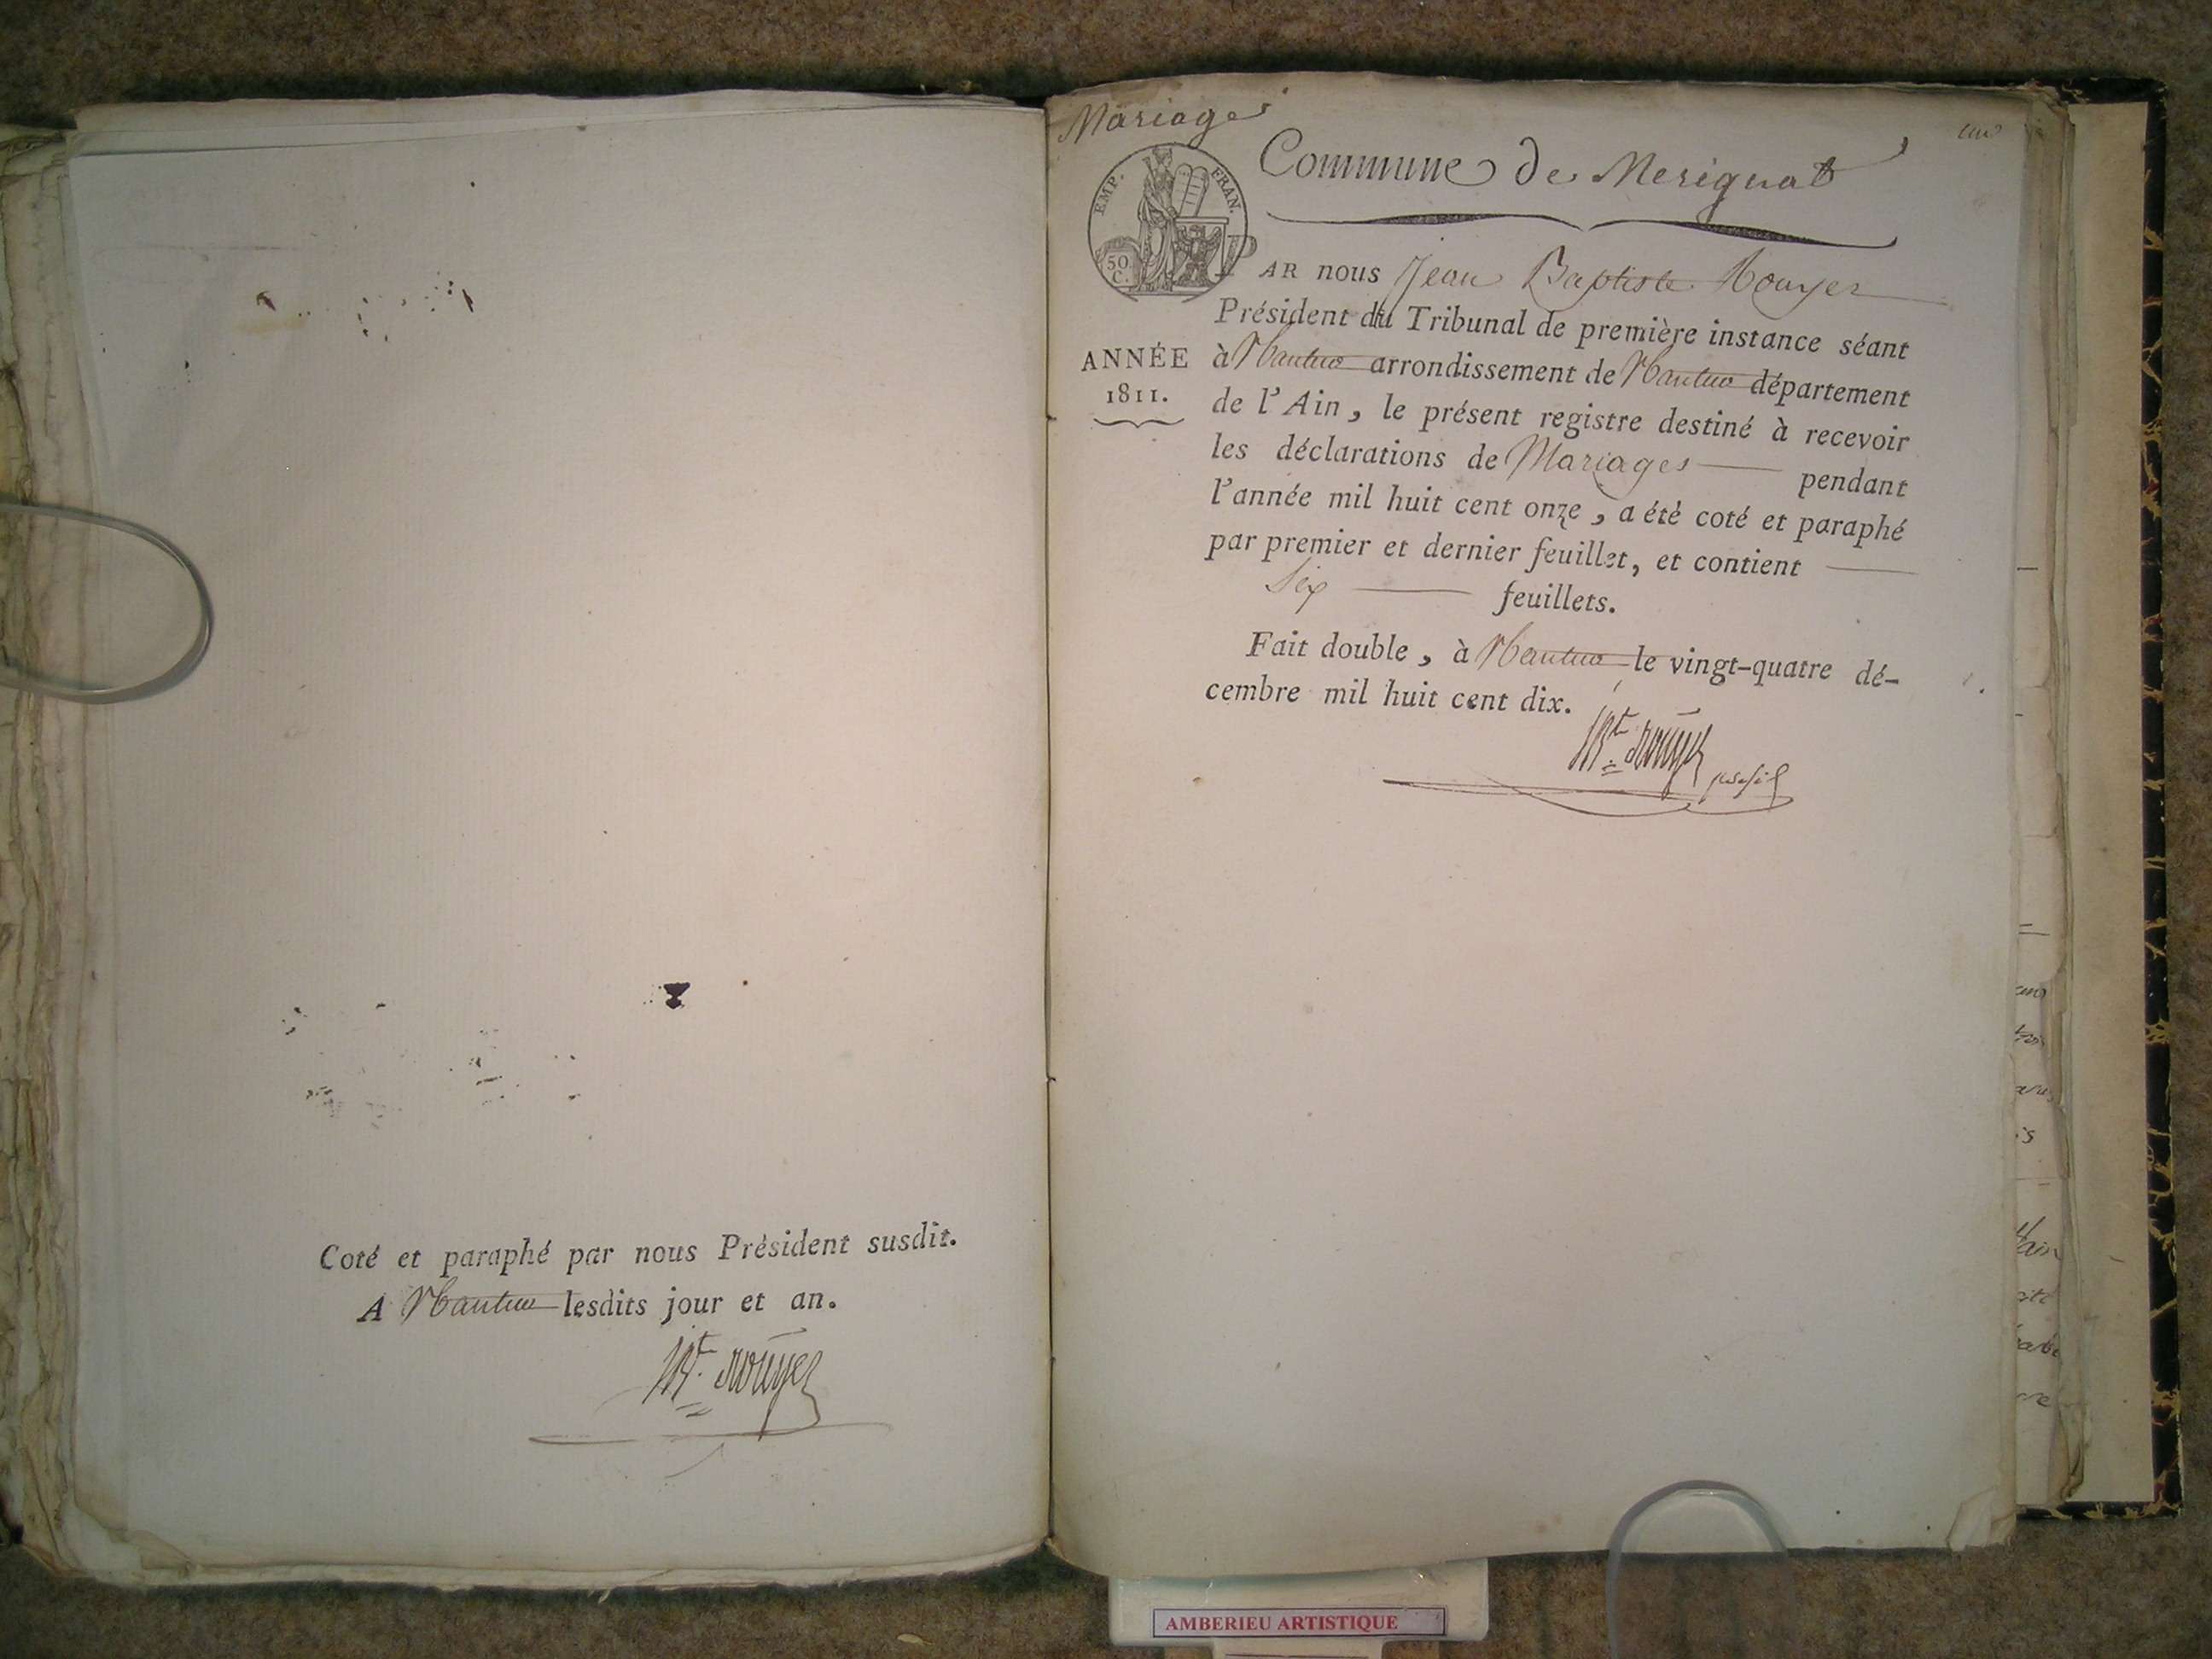 Coté et paraphé par nous Président susdit.
A Nantua lesdits jour et an.
JBt. Rouyer
Mariages
un
Commune de Merignat
EMP. FRAN.
50
C.
AR nous Jean Baptiste Rouyer
Président du Tribunal de première instance séant
ANNÉE
1811.
à Nantua arrondissement de Nantua département
de l'Ain, le présent registre destiné à recevoir
les déclarations de Mariages pendant
l'année mil huit cent onze, a été coté et paraphé
par premier et dernier feuillet, et contient
Six feuillets.
Fait double, à Nantua le vingt-quatre dé-
cembre mil huit cent dix.
JBt. Rouyer
AMBERIEU ARTISTIQUE